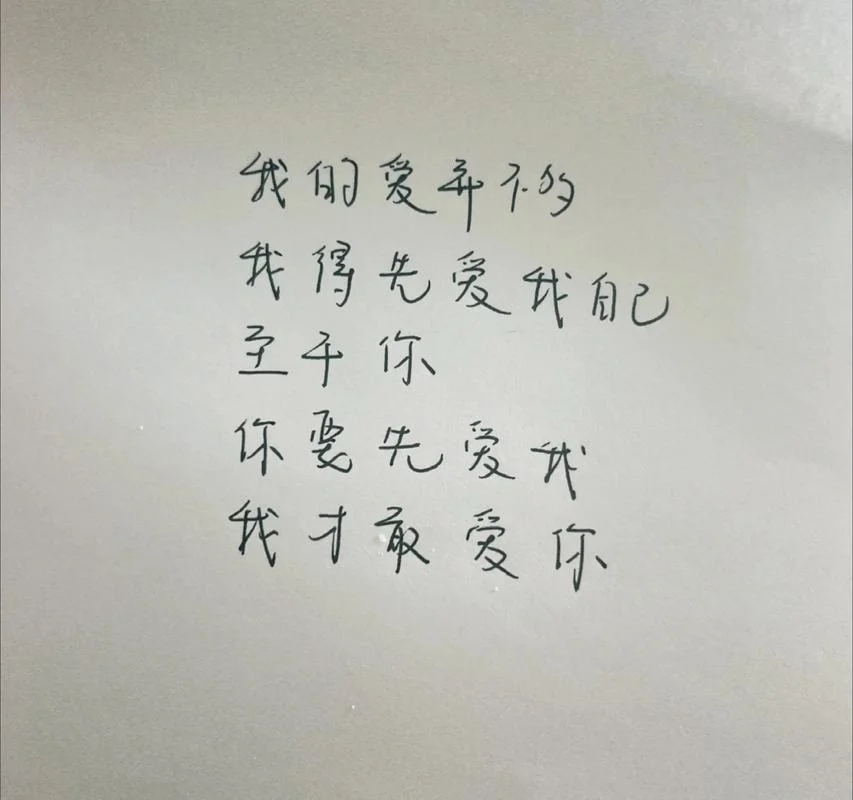 我的爱并不多
我得先爱我自己
至于你
你要先爱我
我才敢爱你